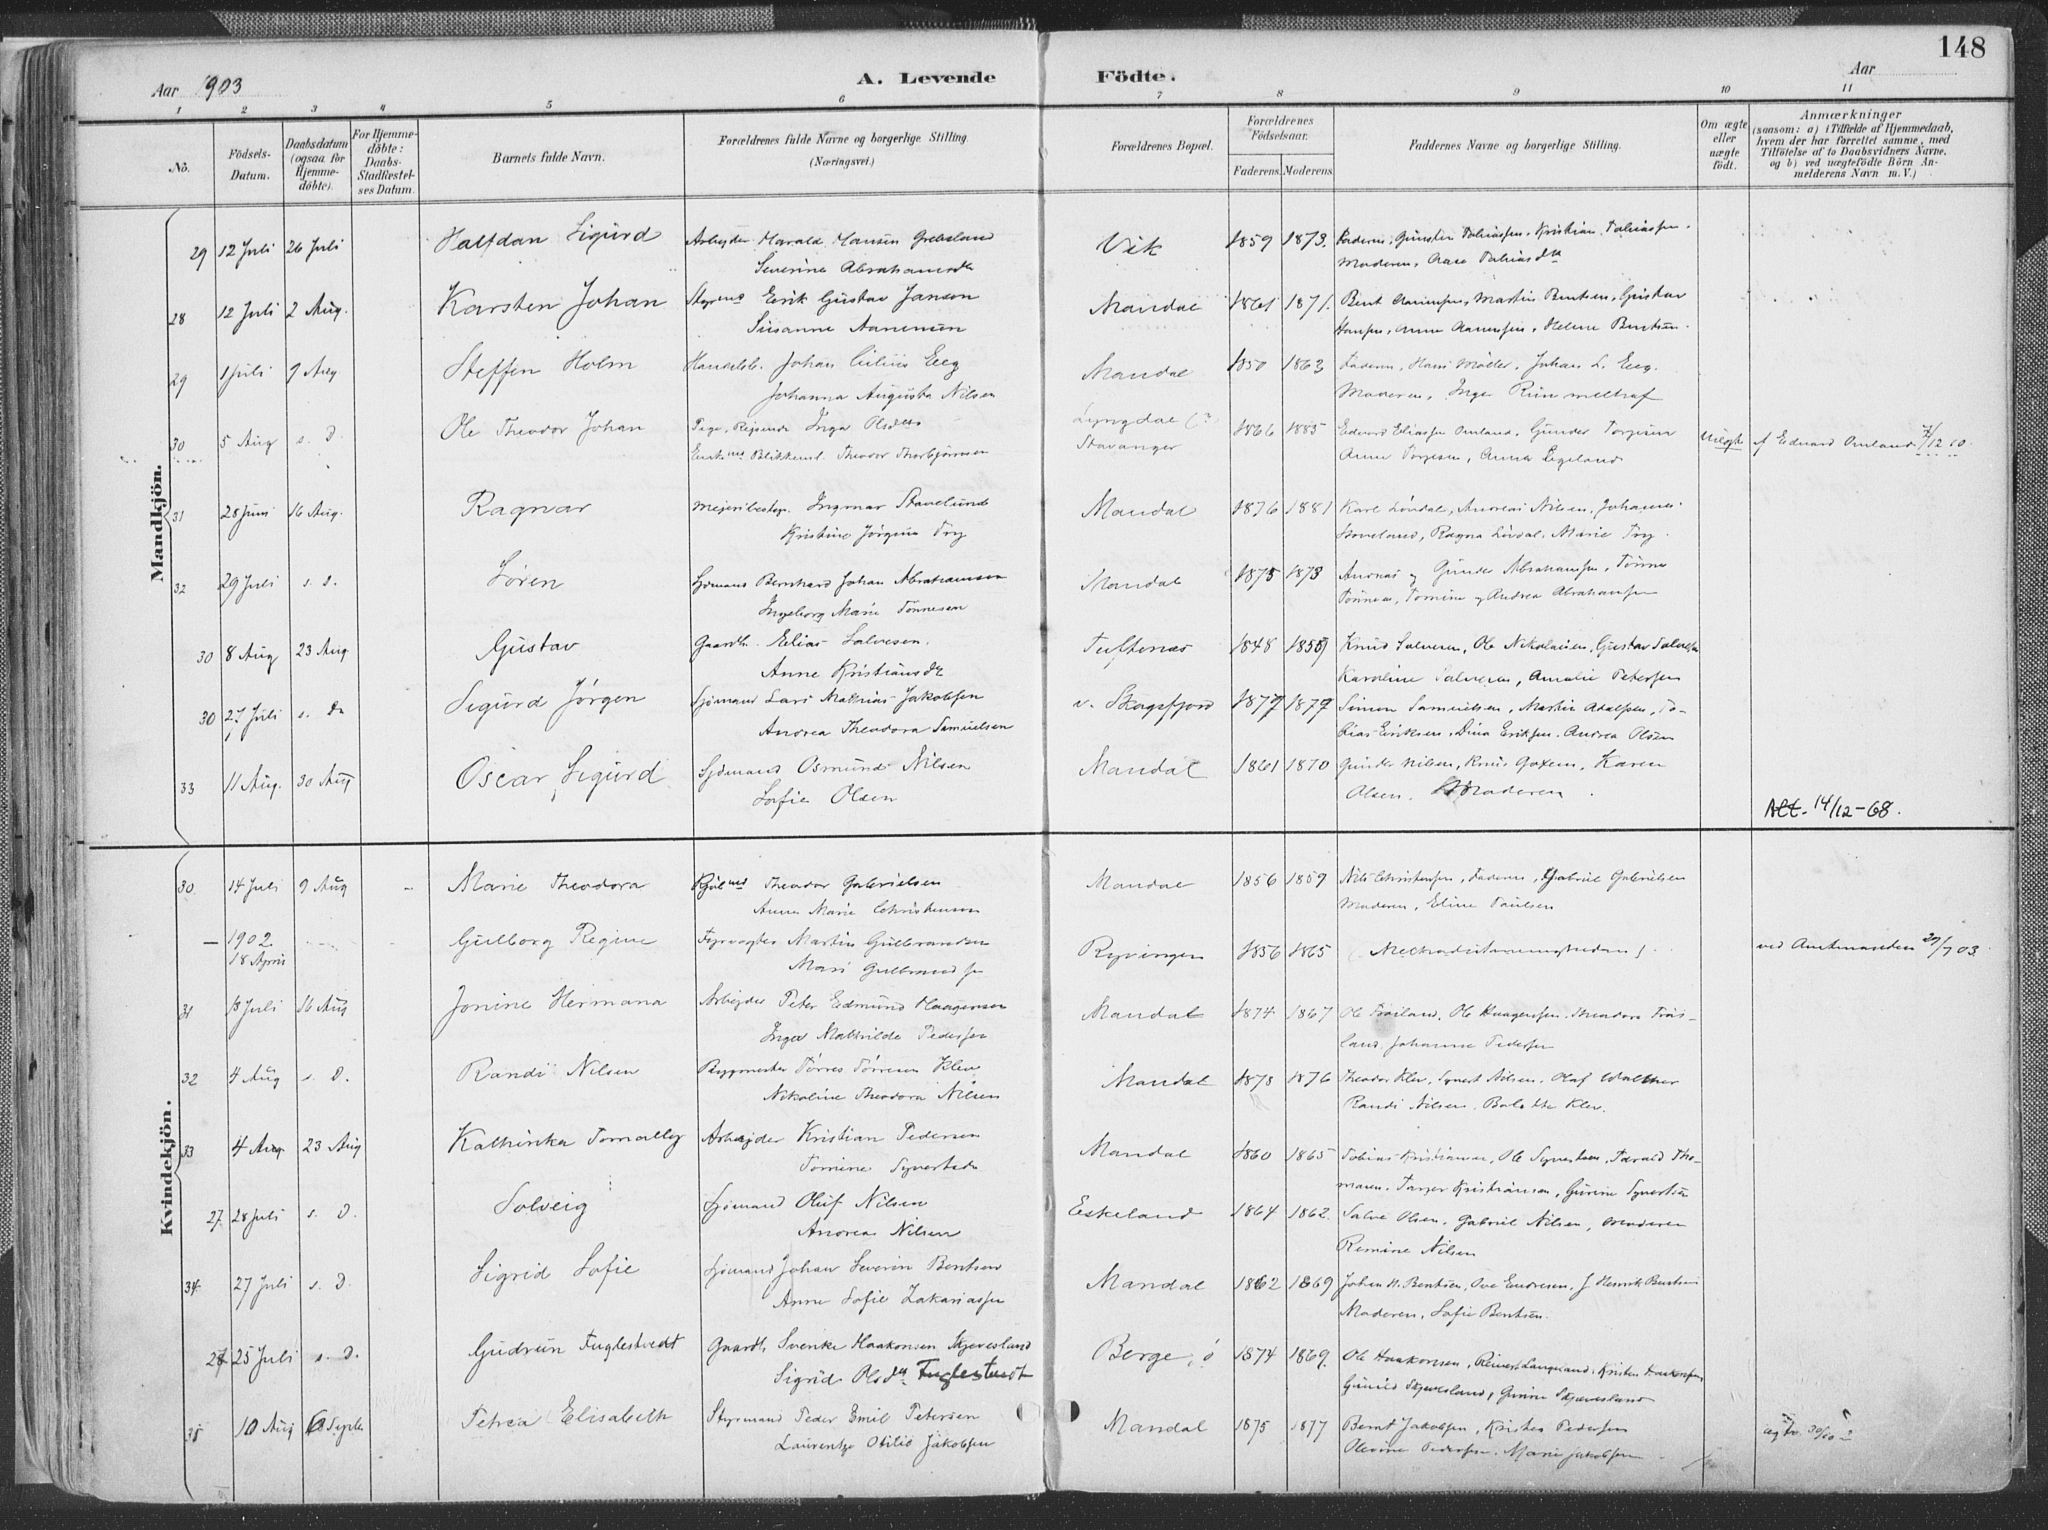 148
Aar 1903
A. Levende Födte.
Aar
1 2 3 4 5 6 7 8 9 10 11
No.
Födsels-Datum.
Daabsdatum (ogsaa for Hjemmedöbte).
For Hjemmedöbte: Daabs-Stadfæstelses Datum.
Barnets fulde Navn.
Forældrenes fulde Navne og borgerlige Stilling. (Næringsvei.)
Forældrenes Bopæl.
Forældrenes Födselsaar.
Faderens Moderens
Faddernes Navne og borgerlige Stilling.
Om ægte eller uægte födt.
Anmærkninger (saasom: a) i Tilfælde af Hjemmedaab, hvem der har forrettet samme, med Tilföielse af to Daabsvidners Navne. og b) ved uægtefödte Börn Anmelderens Navn m. V.)
Mandkjön.
29 12 Juli 26 Juli Halfdan Sigurd Arbeider Harald Hansen Grebsland Vik 1859 1873 Faderen, Gunsten Tobiassen, Kristian Tobiassen.
Severine Abrahamsdtr Moderen, Aase Tobiasdtr
28 12 Juli 2 Aug. Karsten Johan Styrmd Eerik Gustav Janson Mandal 1861 1871. Bent Aanensen, Martin Bentsen, Gustav
Susanne Aanensen Hansen, Anne Aanensen, Helene Bentsen.
29 1 Juli 9 Aug Steffen Holm Handelsb. Johan Cilius Eeg Mandal 1850 1863 Faderen, Hans Møller, Johan L. Eeg.
Johanna Augusta Nilsen Moderen, Inger
30 5 Aug s. D. Ole Theodor Johan Pige, Rejsende Inga Olsdtr Lyngdal (?) 1866 1885 Edvard Eliassen Omland, Gunder Torjesen Uægte af Edvard Omland 7/12 10.
Enkemd Blikkensl. Theodor Thorbjørnsen Stavanger Anne Torjesen, Anna Egeland
31 28 Juni 16 Aug. Ragnar Mejeribestyr. Ingmar Stavelund Mandal 1876 1881 Karl Lindal, Andreas Nilsen, Johannes
Kristine Jørgine Try Ragna Lindal, Marie Try.
32 29 Juli s. d. Søren Sjømand Bernhard Johan Abrahamsen Mandal 1875 1873 Andreas og Gunder Abrahamsen, Tønnes
Ingeborg Marie Tønnesen Tønnesen, Tomine og Andrea Abrahamsen
30 8 Aug 23 Aug. Gustav Gaardb. Elias Salvesen. Tuftenes 1848 1859 Knud Salvesen, Ole Nikolaisen, Gustav Salvesen
Anne Kristiansdtr Karoline Salvesen, Amalie Petersen
30 27 Juli s. Dn Sigurd Jørgen Sjømand Lars Mathias Jakobsen v. Skogsfjord 1877 1877 Simon Samuelsen, Martin Adolfsen, To-
Andrea Theodora Samuelsen bias Eriksen, Dina Eriksen, Andrea Olsen
33 11 Aug. 30 Aug Oscar Sigurd Sjømand Osmund Nilsen Mandal 1861 1870 Gunder Nilsen, Karen
Sofie Olsen Olsen. Moderen.
Att. 14/12-68.
Kvindekjön.
30 14 Juli 9 Aug Marie Theodora Theodor Gabrielsen Mandal 1856 1859 Nils Christensen, Faderen, Gabriel Gabrielsen
Anne Marie Christensen Moderen, Eline Paulsen
— 1902 18 April Gulborg Regine Fyrvogter Martin Gulbrandsen Ryvingen 1856 1865 ved Amtmanden 29/7 03.
Mari Gulbrandsen
31 8 Juli 16 Aug Jonine Hermana Arbejder Peter Edmund Haagensen Mandal 1874 1867 Ole Ole Haagensen, Theodora
Inger Mathilde Pedersen land, Johanne Pedersen
32 4 Aug s. D. Randi Nilsen Bygmester Tørres Tørresen Klev Mandal 1873 1876 Theodor Klev, Syvert Nilsen, Olaf Walther
Nikoline Theodora Nilsen Randi Nilsen, Bolette Klev.
33 4 Aug 23 Aug Kathinka Tomally Arbejder Kristian Pedersen Mandal 1860 1865 Tobias Kristiansen, Ole Syvertsen, Tarald Tho-
Tomine Syvertsdr masen, Kristiansen, Gurine Syvertsen
27. 28 Juli s. D. Solveig Sjømand Oluf Nilsen Eskeland 1864 1862. Salve Olsen, Gabriel Nilsen, Moderen
Andrea Nilsen Nilsen
34. 27 Juli s. D. Sigrid Sofie Sjømand Johan Severin Bentsen Mandal 1862 1869 Johan H. Bentsen, Ove Endresen, J. Henrik Bentsen
Anne Sofie Zakariassen Moderen, Sofie Bentsen.
28 25 Juli s. D. Gudrun Fuglestvedt Gaardb. Svenke Haakonsen Skjevesland Berge, ö 1874 1869. Ole Haakonsen, Reinert Langeland, Kristen Haakonsen
Sigrid Olsdtr. Fuglestvedt Gunild Skjevesland, Gurine Skjævesland
35 10 Aug 6 Septb. Petrea Elisabeth Styrmand Peder Emil Petersen Mandal 1875 1877 Bernt Jakobsen, Kristen Pedersen
Laurentze Otilie Jakobsen Olevine Pedersen, Marie Jakobsen